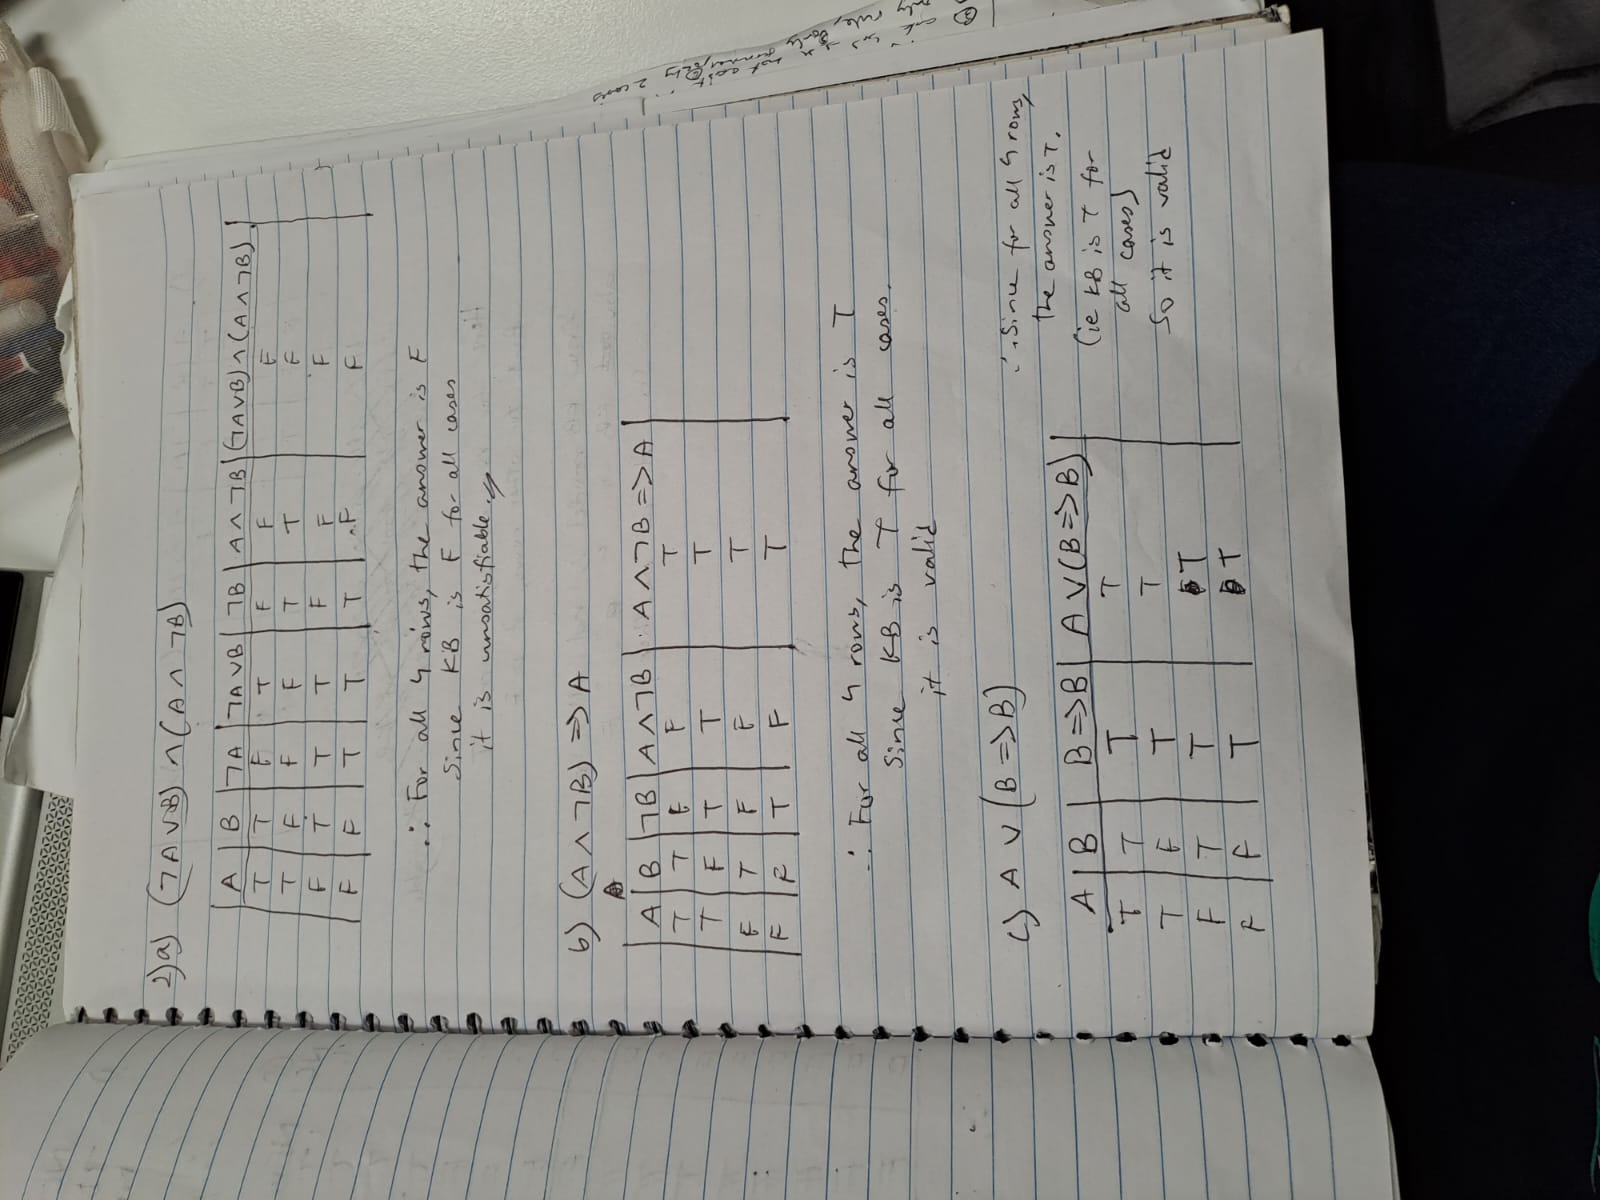 2)a) (¬A∨B) ∧ (A ∧ ¬B)
A | B | ¬A | ¬A∨B | ¬B | A∧¬B | (¬A∨B) ∧ (A∧¬B)
T | T | F | T | F | F | F
T | F | F | F | T | T | F
F | T | T | T | F | F | F
F | F | T | T | T | F | F
∴ For all 4 rows, the answer is F
Since KB is F for all cases
it is unsatisfiable.
b) (A ∧ ¬B) => A
A | B | ¬B | A∧¬B | A∧¬B => A
T | T | F | F | T
T | F | T | T | T
F | T | F | F | T
F | F | T | F | T
∴ For all 4 rows, the answer is T
Since KB is T for all cases.
it is valid
c) A ∨ (B => B)
A | B | B => B | A ∨ (B => B)
T | T | T | T
T | F | T | T
F | T | T | T
F | F | T | T
∴ Since for all 4 rows,
the answer is T.
(ie KB is T for
all cases)
So it is valid
not exist
2 cases
only
only rule,